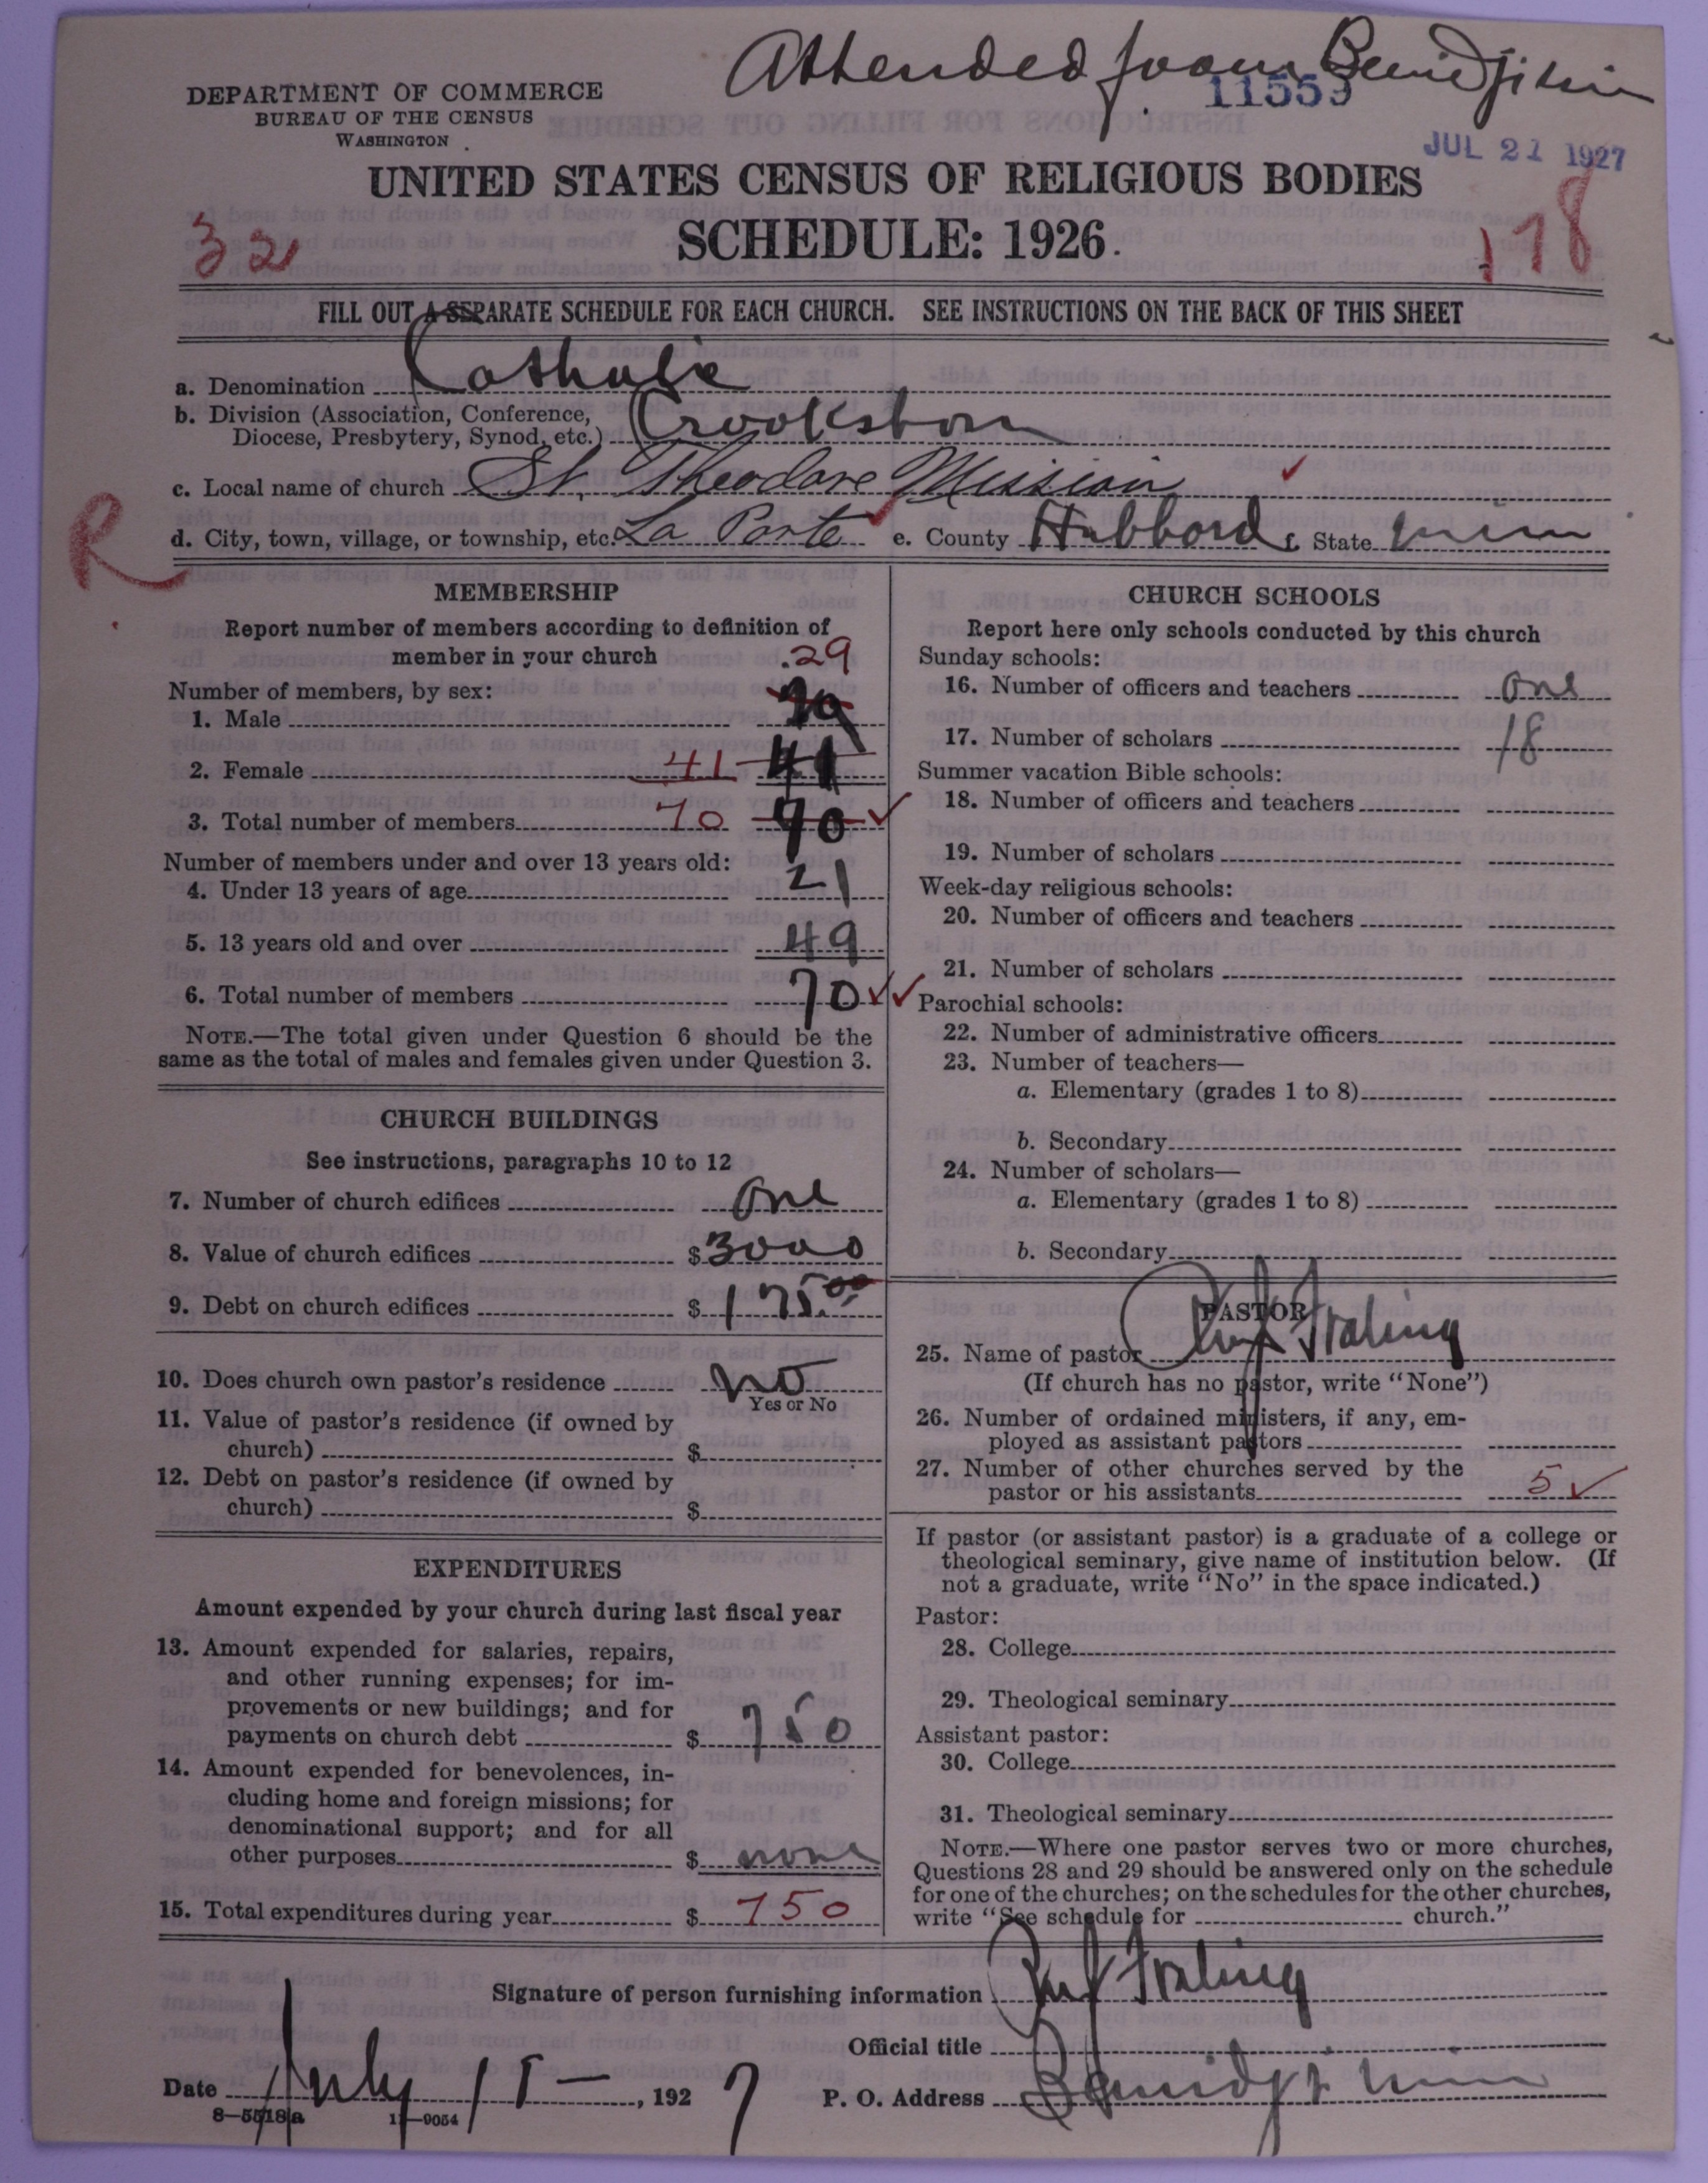 Attended from Bemidji Minn
DEPARTMENT OF COMMERCE
BUREAU OF THE CENSUS
WASHINGTON
11559
JUL 21 1927
UNITED STATES CENSUS OF RELIGIOUS BODIES
SCHEDULE: 1926.
32
178
FILL OUT A SEPARATE SCHEDULE FOR EACH CHURCH. SEE INSTRUCTIONS ON THE BACK OF THIS SHEET
a. Denomination Catholic
b. Division (Association, Conference,
Diocese, Presbytery, Synod, etc.) Crookston
c. Local name of church St. Theodore Mission ✓
R
d. City, town, village, or township, etc. La Porte ✓ e. County Hubbard f. State Minn
MEMBERSHIP
Report number of members according to definition of
member in your church
29
Number of members, by sex:
1. Male
2. Female 41 41
3. Total number of members 70 70 ✓
Number of members under and over 13 years old:
4. Under 13 years of age 21
5. 13 years old and over 49
6. Total number of members 70 ✓✓
NOTE.—The total given under Question 6 should be the
same as the total of males and females given under Question 3.
CHURCH BUILDINGS
See instructions, paragraphs 10 to 12
7. Number of church edifices One
8. Value of church edifices $ 3000
9. Debt on church edifices $ 175.00
10. Does church own pastor's residence No
Yes or No
11. Value of pastor's residence (if owned by
church) $
12. Debt on pastor's residence (if owned by
church) $
EXPENDITURES
Amount expended by your church during last fiscal year
13. Amount expended for salaries, repairs,
and other running expenses; for im-
provements or new buildings; and for
payments on church debt $ 750
14. Amount expended for benevolences, in-
cluding home and foreign missions; for
denominational support; and for all
other purposes $ none
15. Total expenditures during year $ 750
CHURCH SCHOOLS
Report here only schools conducted by this church
Sunday schools:
16. Number of officers and teachers One
17. Number of scholars 18
Summer vacation Bible schools:
18. Number of officers and teachers
19. Number of scholars
Week-day religious schools:
20. Number of officers and teachers
21. Number of scholars
Parochial schools:
22. Number of administrative officers
23. Number of teachers—
a. Elementary (grades 1 to 8)
b. Secondary
24. Number of scholars—
a. Elementary (grades 1 to 8)
b. Secondary
PASTOR
25. Name of pastor
(If church has no pastor, write "None")
26. Number of ordained ministers, if any, em-
ployed as assistant pastors
27. Number of other churches served by the
pastor or his assistants 5 ✓
If pastor (or assistant pastor) is a graduate of a college or
theological seminary, give name of institution below. (If
not a graduate, write "No" in the space indicated.)
Pastor:
28. College
29. Theological seminary
Assistant pastor:
30. College
31. Theological seminary
NOTE.—Where one pastor serves two or more churches,
Questions 28 and 29 should be answered only on the schedule
for one of the churches; on the schedules for the other churches,
write "See schedule for church."
Signature of person furnishing information
Official title
Date July 15 —, 1927 P. O. Address Bemidji Minn
8—5518a 11—9054